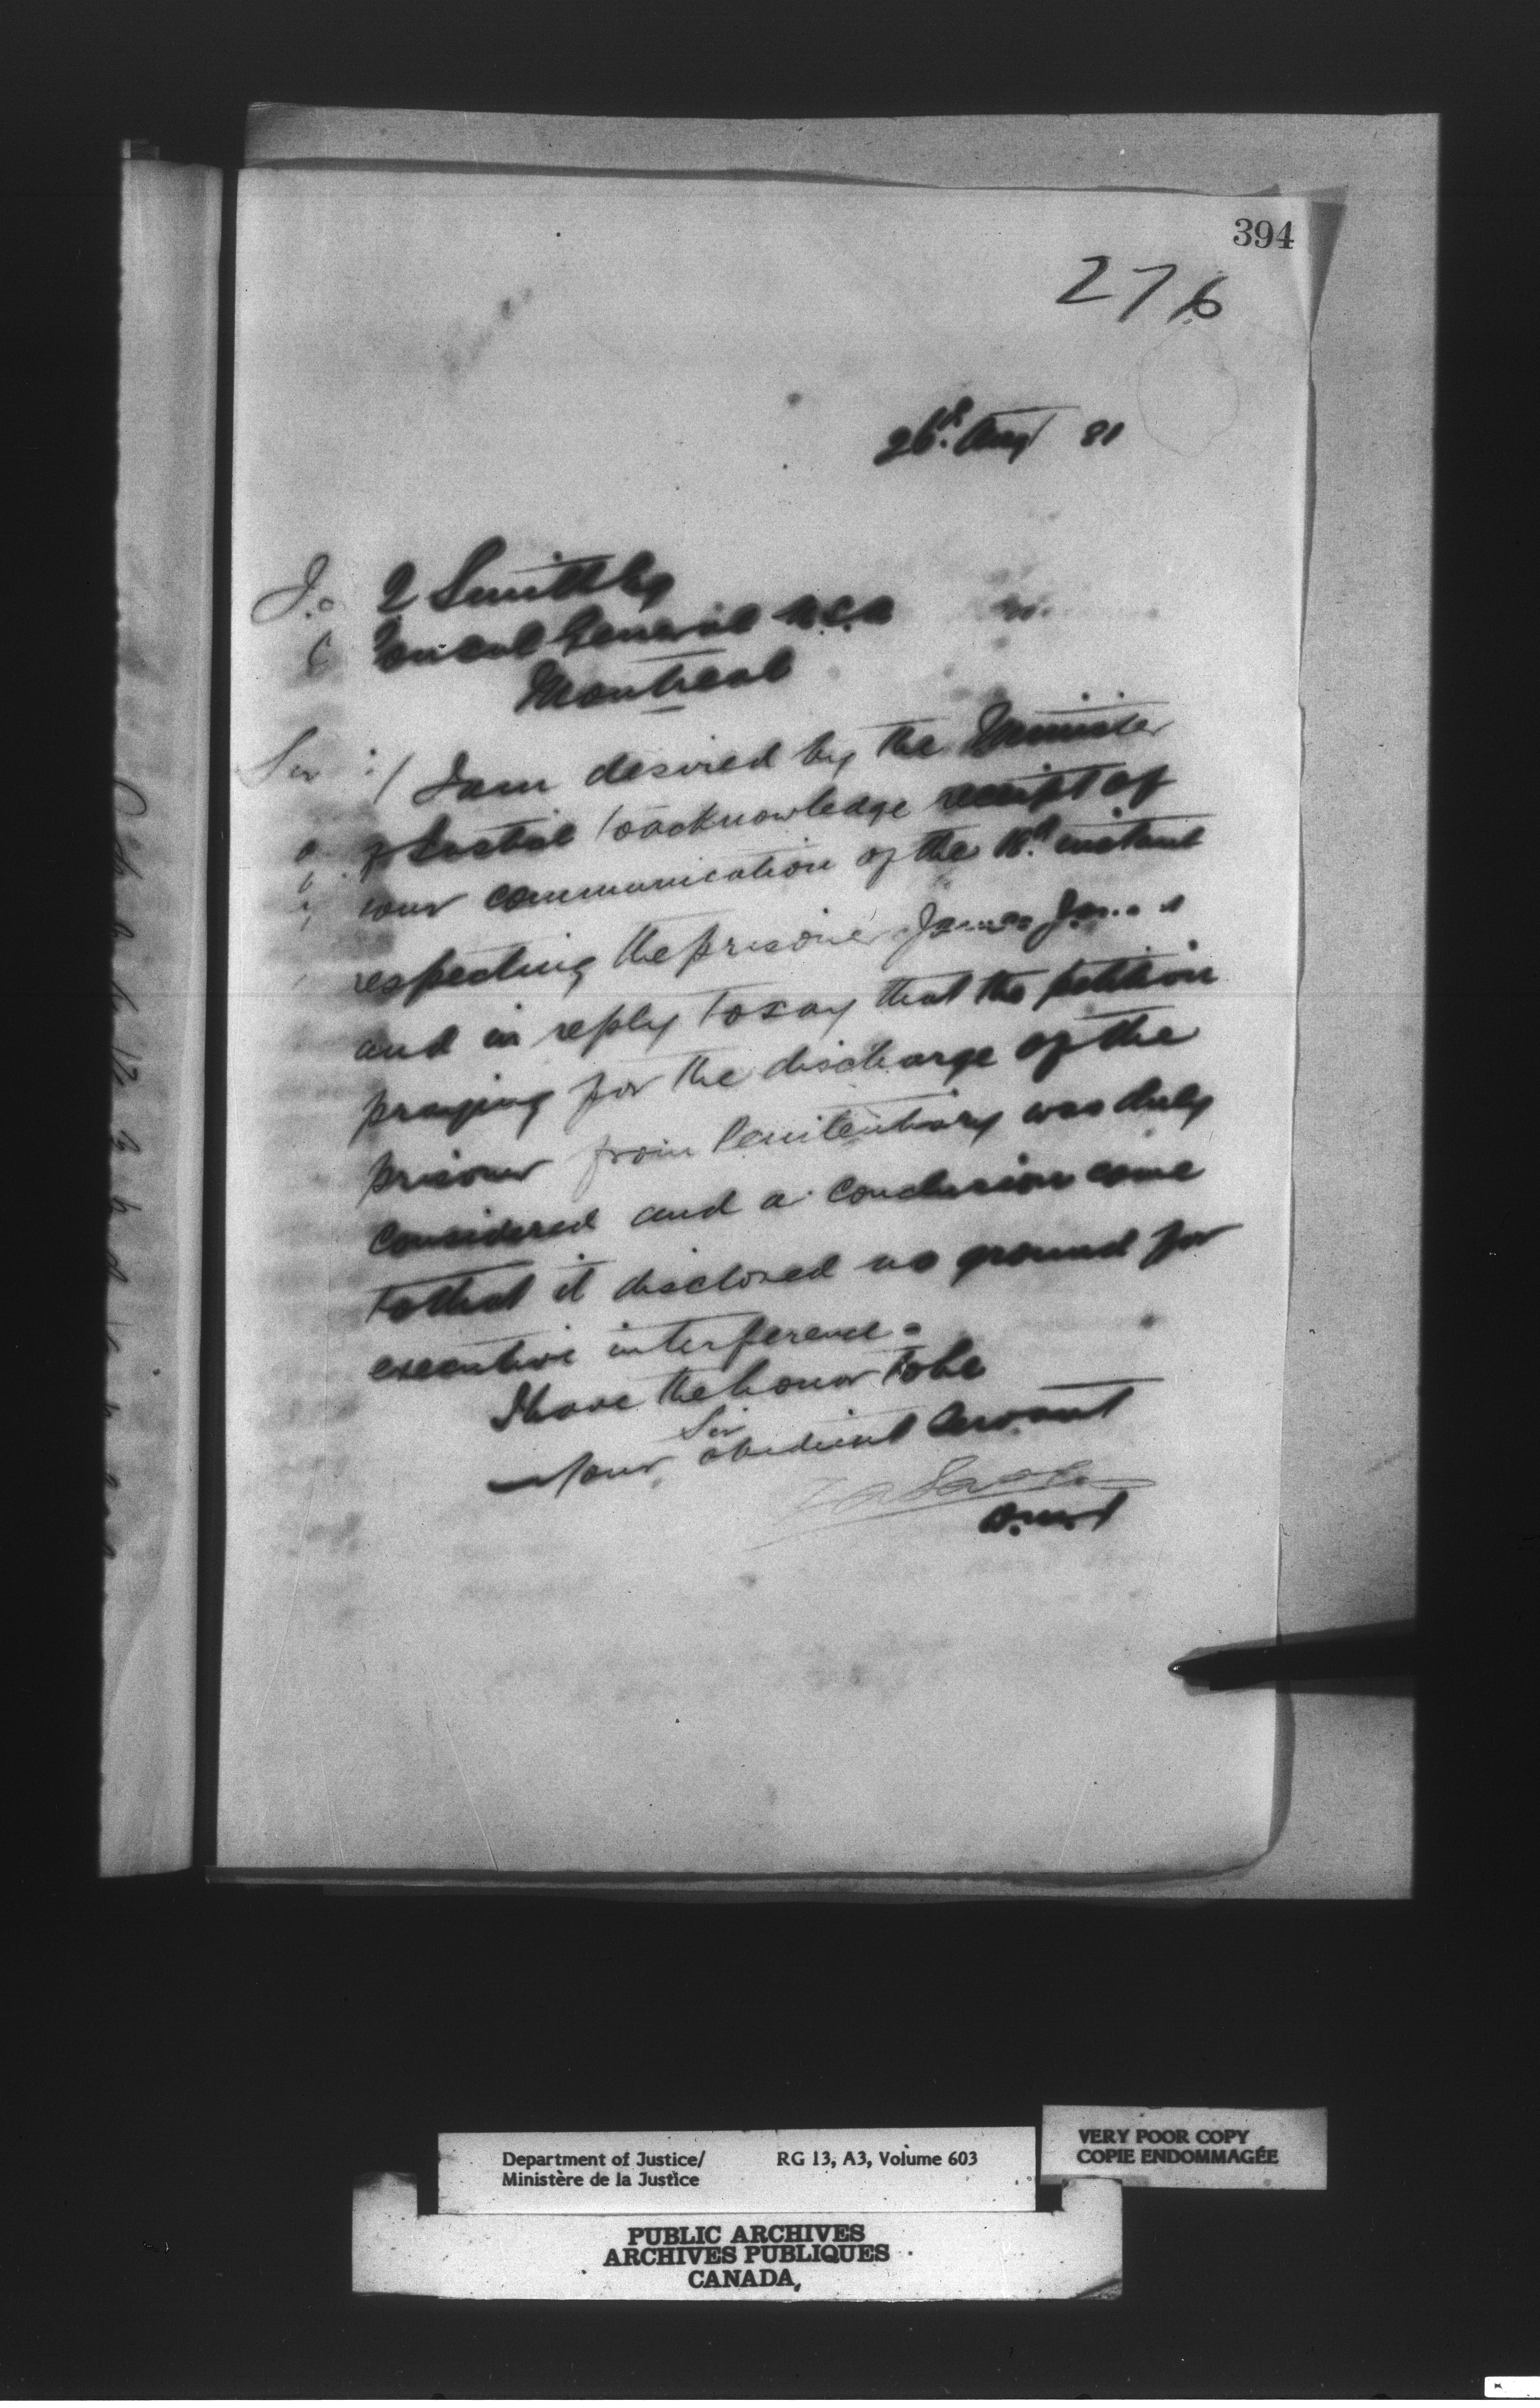 394
276
26th Augt 81
J. Q Smith Esq
Consul General U.S.A
Montreal
Sir :/ I am desired by the Minister
of Justice to acknowledge receipt of
your communication of the 18th instant
respecting the prisoner James
and in reply to say that the petition
praying for the discharge of the
prisoner from Penitentiary was duly
considered and a conclusion come
to that it disclosed no ground for
executive interference.
I have the honor to be
Sir
Your obedient Servant
D.M.J
Department of Justice/ RG 13, A3, Volume 603
Ministère de la Justice
VERY POOR COPY
COPIE ENDOMMAGÉE
PUBLIC ARCHIVES
ARCHIVES PUBLIQUES
CANADA